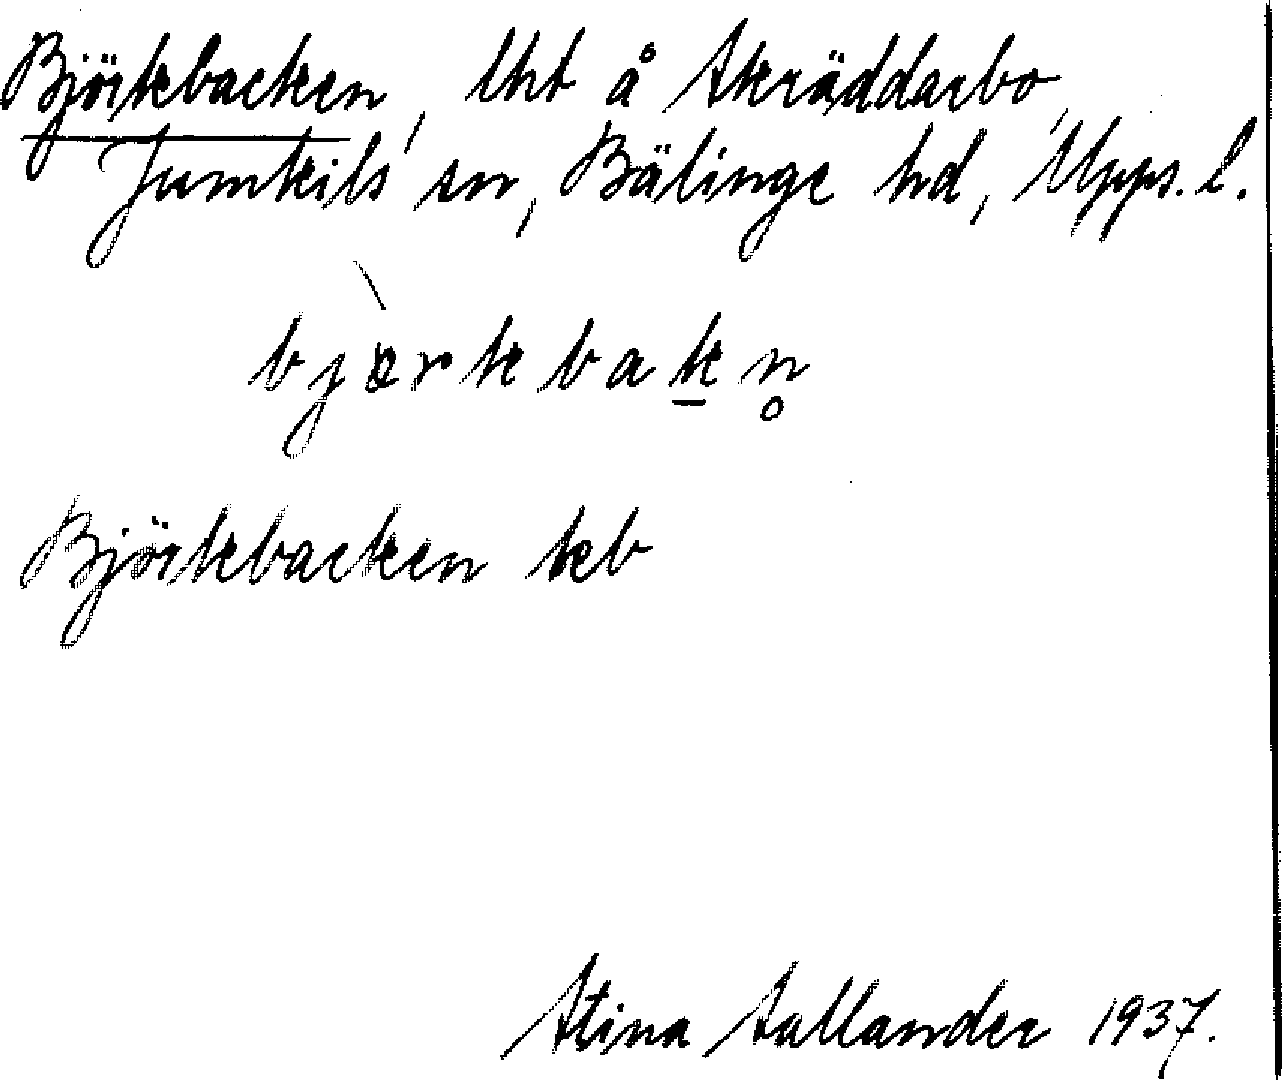 Björkbacken, lht å Skräddarbo,
Jumkils sn, Bälinge hd, Upps. l.
bjàrkbak̲n̥
Björkbacken kb
Stina Sallander 1937.